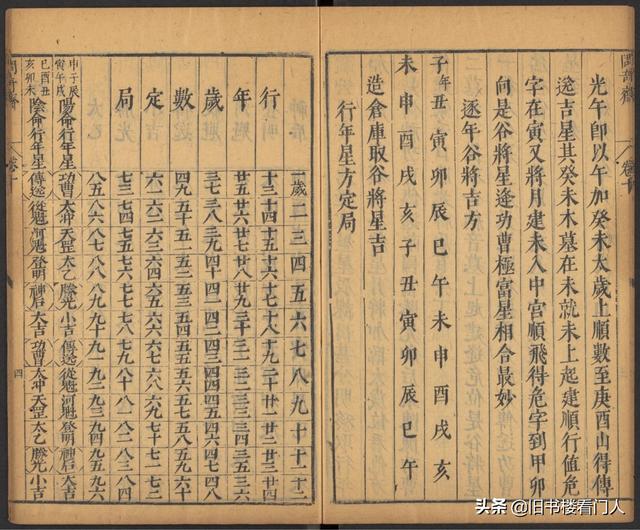 光午即以午加癸未太歲上順數至庚酉山得傳
送吉星其癸未木墓在未就未上起建順行值危
字在寅又將月建未入中宮順飛得危字到甲卯
向是谷將星逢功曹極富星相合最妙
逐年谷將吉方
子年丑寅卯辰巳午未申酉戌亥
未申酉戌亥子丑寅卯辰巳午
造倉庫取谷將星吉
行年星方定局
行年歲數定局
一歲二三四五六七八九十十一十二
十三十四十五十六十七十八十九二十廿一廿二廿三廿四
廿五廿六廿七廿八廿九三十三一三二三三三四三五三六
三七三八三九四十四一四二四三四四四五四六四七四八
四九五十五一五二五三五四五五五六五七五八五九六十
六一六二六三六四六五六六六七六八六九七十七一七二
七三七四七五七六七七七八七九八十八一八二八三八四
八五八六八七八八八九九十九一九二九三九四九五九六
申子辰寅午戌陽命行年星功曹太冲天罡太乙勝光小吉傳送從魁河魁登明神后大吉
巳酉丑亥卯未陰命行年星傳送從魁河魁登明神后大吉功曹太冲天罡太乙勝光小吉
卷十
四
头条 @旧书楼看门人